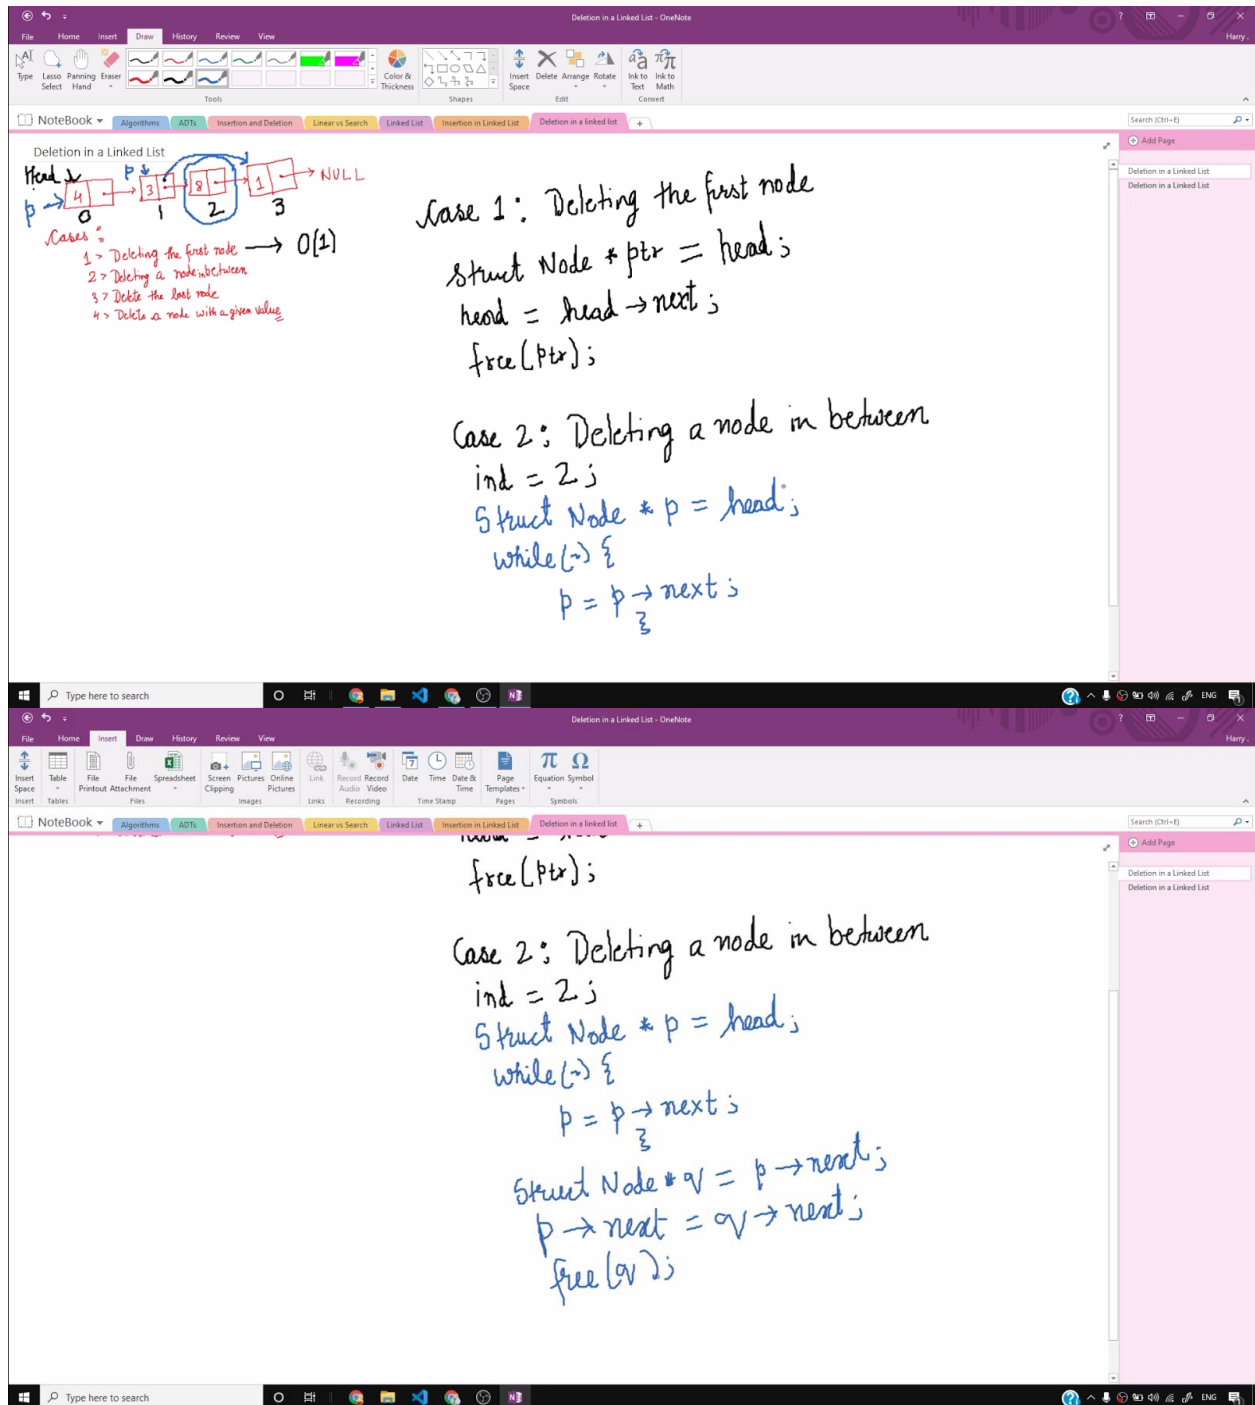 Deletion in a Linked List - OneNote
File Home Insert Draw History Review View
Harry .
Type
Lasso Select
Panning Hand
Eraser
Color & Thickness
Insert Space
Delete
Arrange
Rotate
Ink to Text
Ink to Math
Tools
Shapes
Edit
Convert
NoteBook
Algorithms
ADTs
Insertion and Deletion
Linear vs Search
Linked List
Insertion in Linked List
Deletion in a linked list
Search (Ctrl+E)
Add Page
Deletion in a Linked List
Deletion in a Linked List
Deletion in a Linked List
Head
p
p
4 3 8 1 NULL
0 1 2 3
Cases :
1 > Deleting the first node → O(1)
2 > Deleting a node in between
3 > Delete the last node
4 > Delete a node with a given value
Case 1 : Deleting the first node
struct Node * ptr = head ;
head = head → next ;
free (ptr) ;
Case 2 : Deleting a node in between
ind = 2 ;
Struct Node * p = head ;
while (~) {
p = p → next ;
}
Type here to search
ENG
Deletion in a Linked List - OneNote
File Home Insert Draw History Review View
Harry .
Insert Space
Table
File Printout
File Attachment
Spreadsheet
Screen Clipping
Pictures
Online Pictures
Link
Record Audio
Record Video
Date
Time
Date & Time
Page Templates
Equation
Symbol
Insert
Tables
Files
Images
Links
Recording
Time Stamp
Pages
Symbols
NoteBook
Algorithms
ADTs
Insertion and Deletion
Linear vs Search
Linked List
Insertion in Linked List
Deletion in a linked list
Search (Ctrl+E)
Add Page
Deletion in a Linked List
Deletion in a Linked List
free (ptr) ;
Case 2 : Deleting a node in between
ind = 2 ;
Struct Node * p = head ;
while (~) {
p = p → next ;
}
Struct Node * q = p → next ;
p → next = q → next ;
free (q) ;
Type here to search
ENG